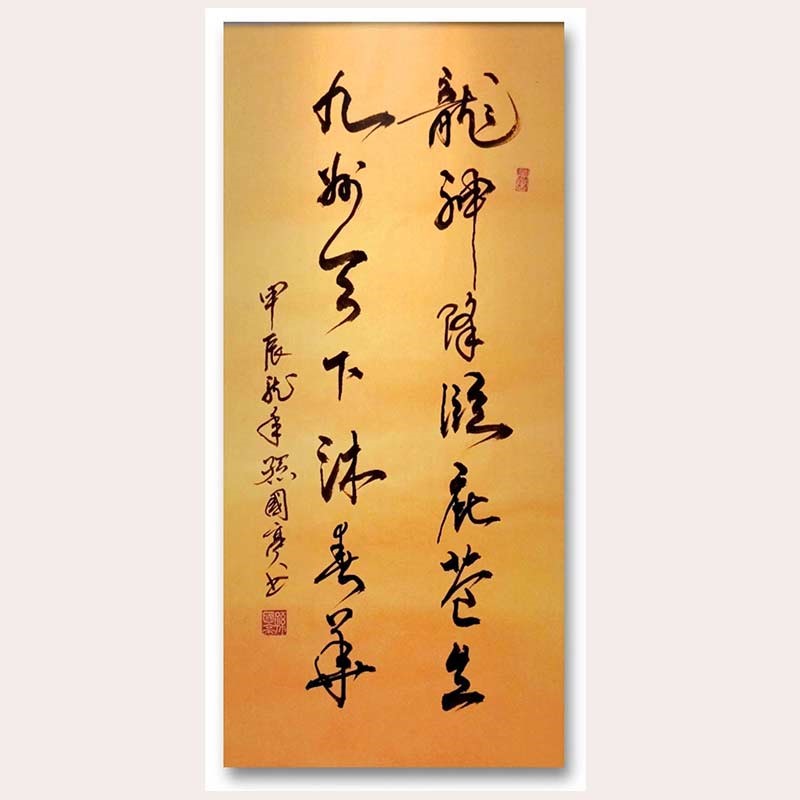 龍神降臨庇蒼生
九州天下沐春華
甲辰龙年孫國亮书